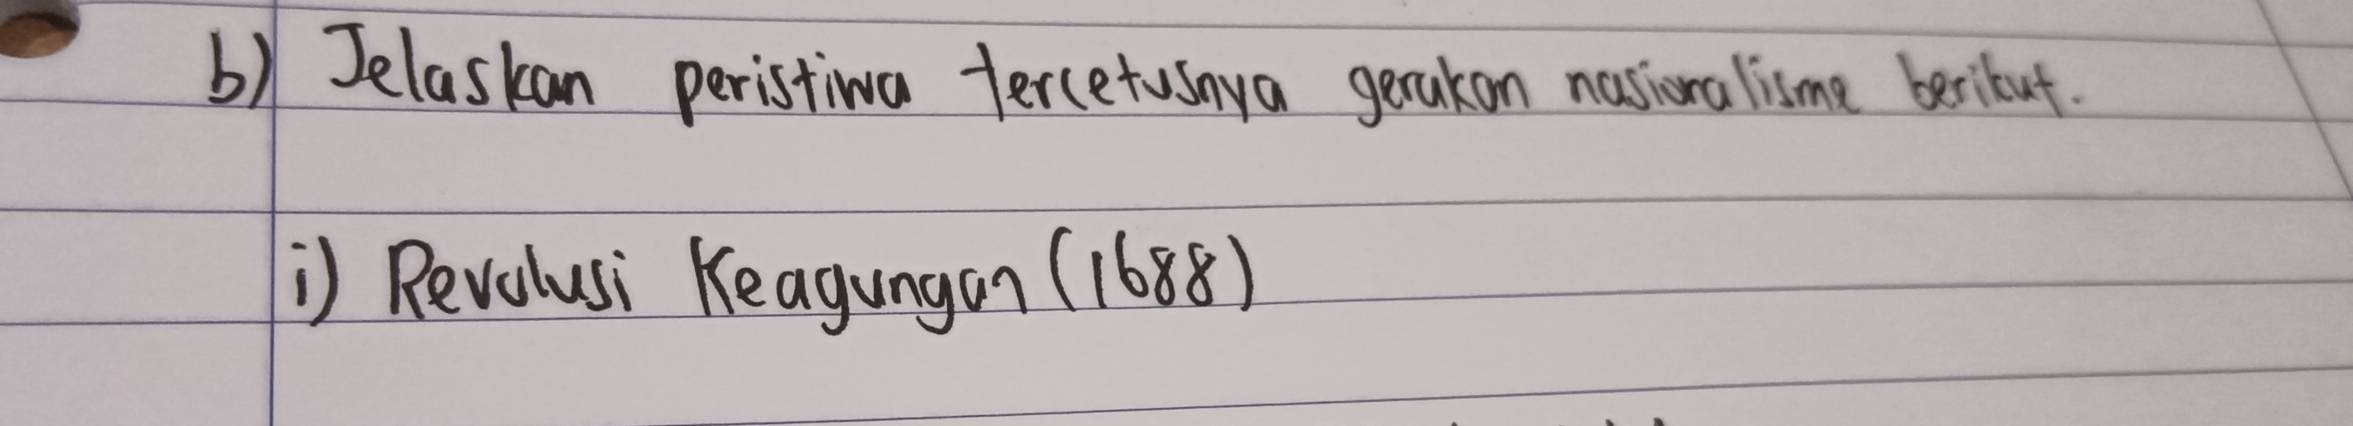 b) Jelaskan peristiwa tercetusnya gerakan nasionalisme berikut.
i) Revolusi Keagungan (1688)